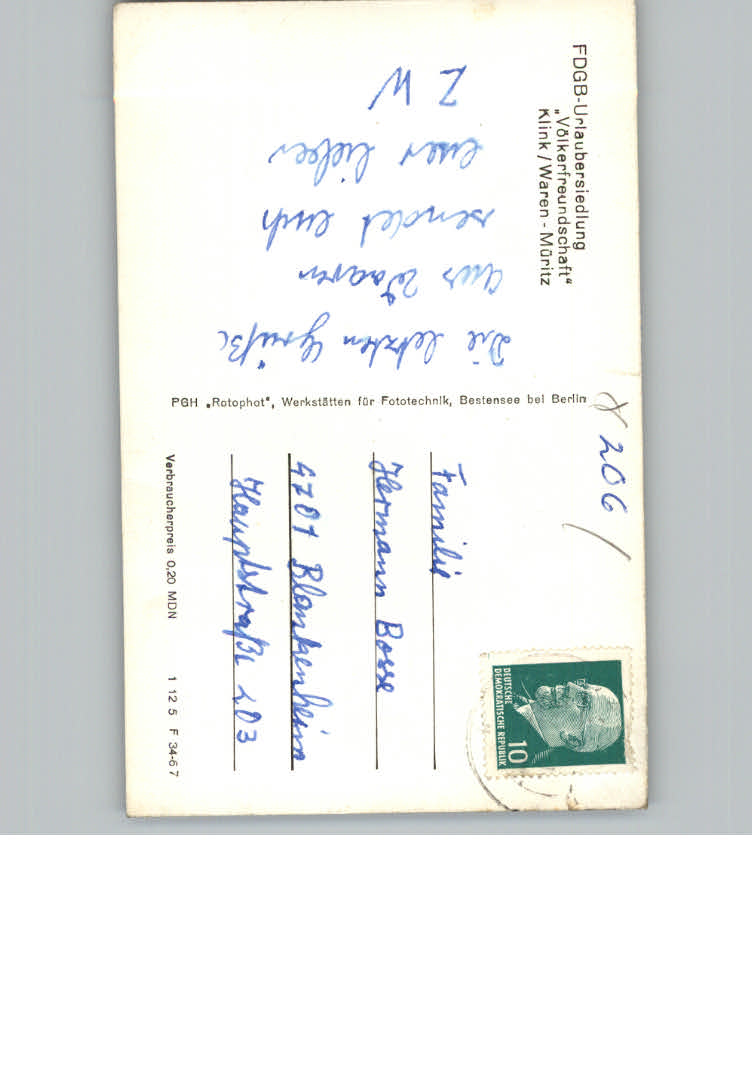 FDGB-Urlaubersiedlung
"Völkerfreundschaft"
Klink/Waren - Müritz
Die letzten Grüße
aus Waaren
sendet euch
euer lieber
Z W
PGH „Rotophot“, Werkstätten für Fototechnik, Bestensee bei Berlin
206
DEUTSCHE
DEMOKRATISCHE REPUBLIK
10
Familie
Hermann Bosse
4701 Blankenheim
Hauptstraße 203
Verbraucherpreis 0,20 MDN 1 12 5 F 34-67